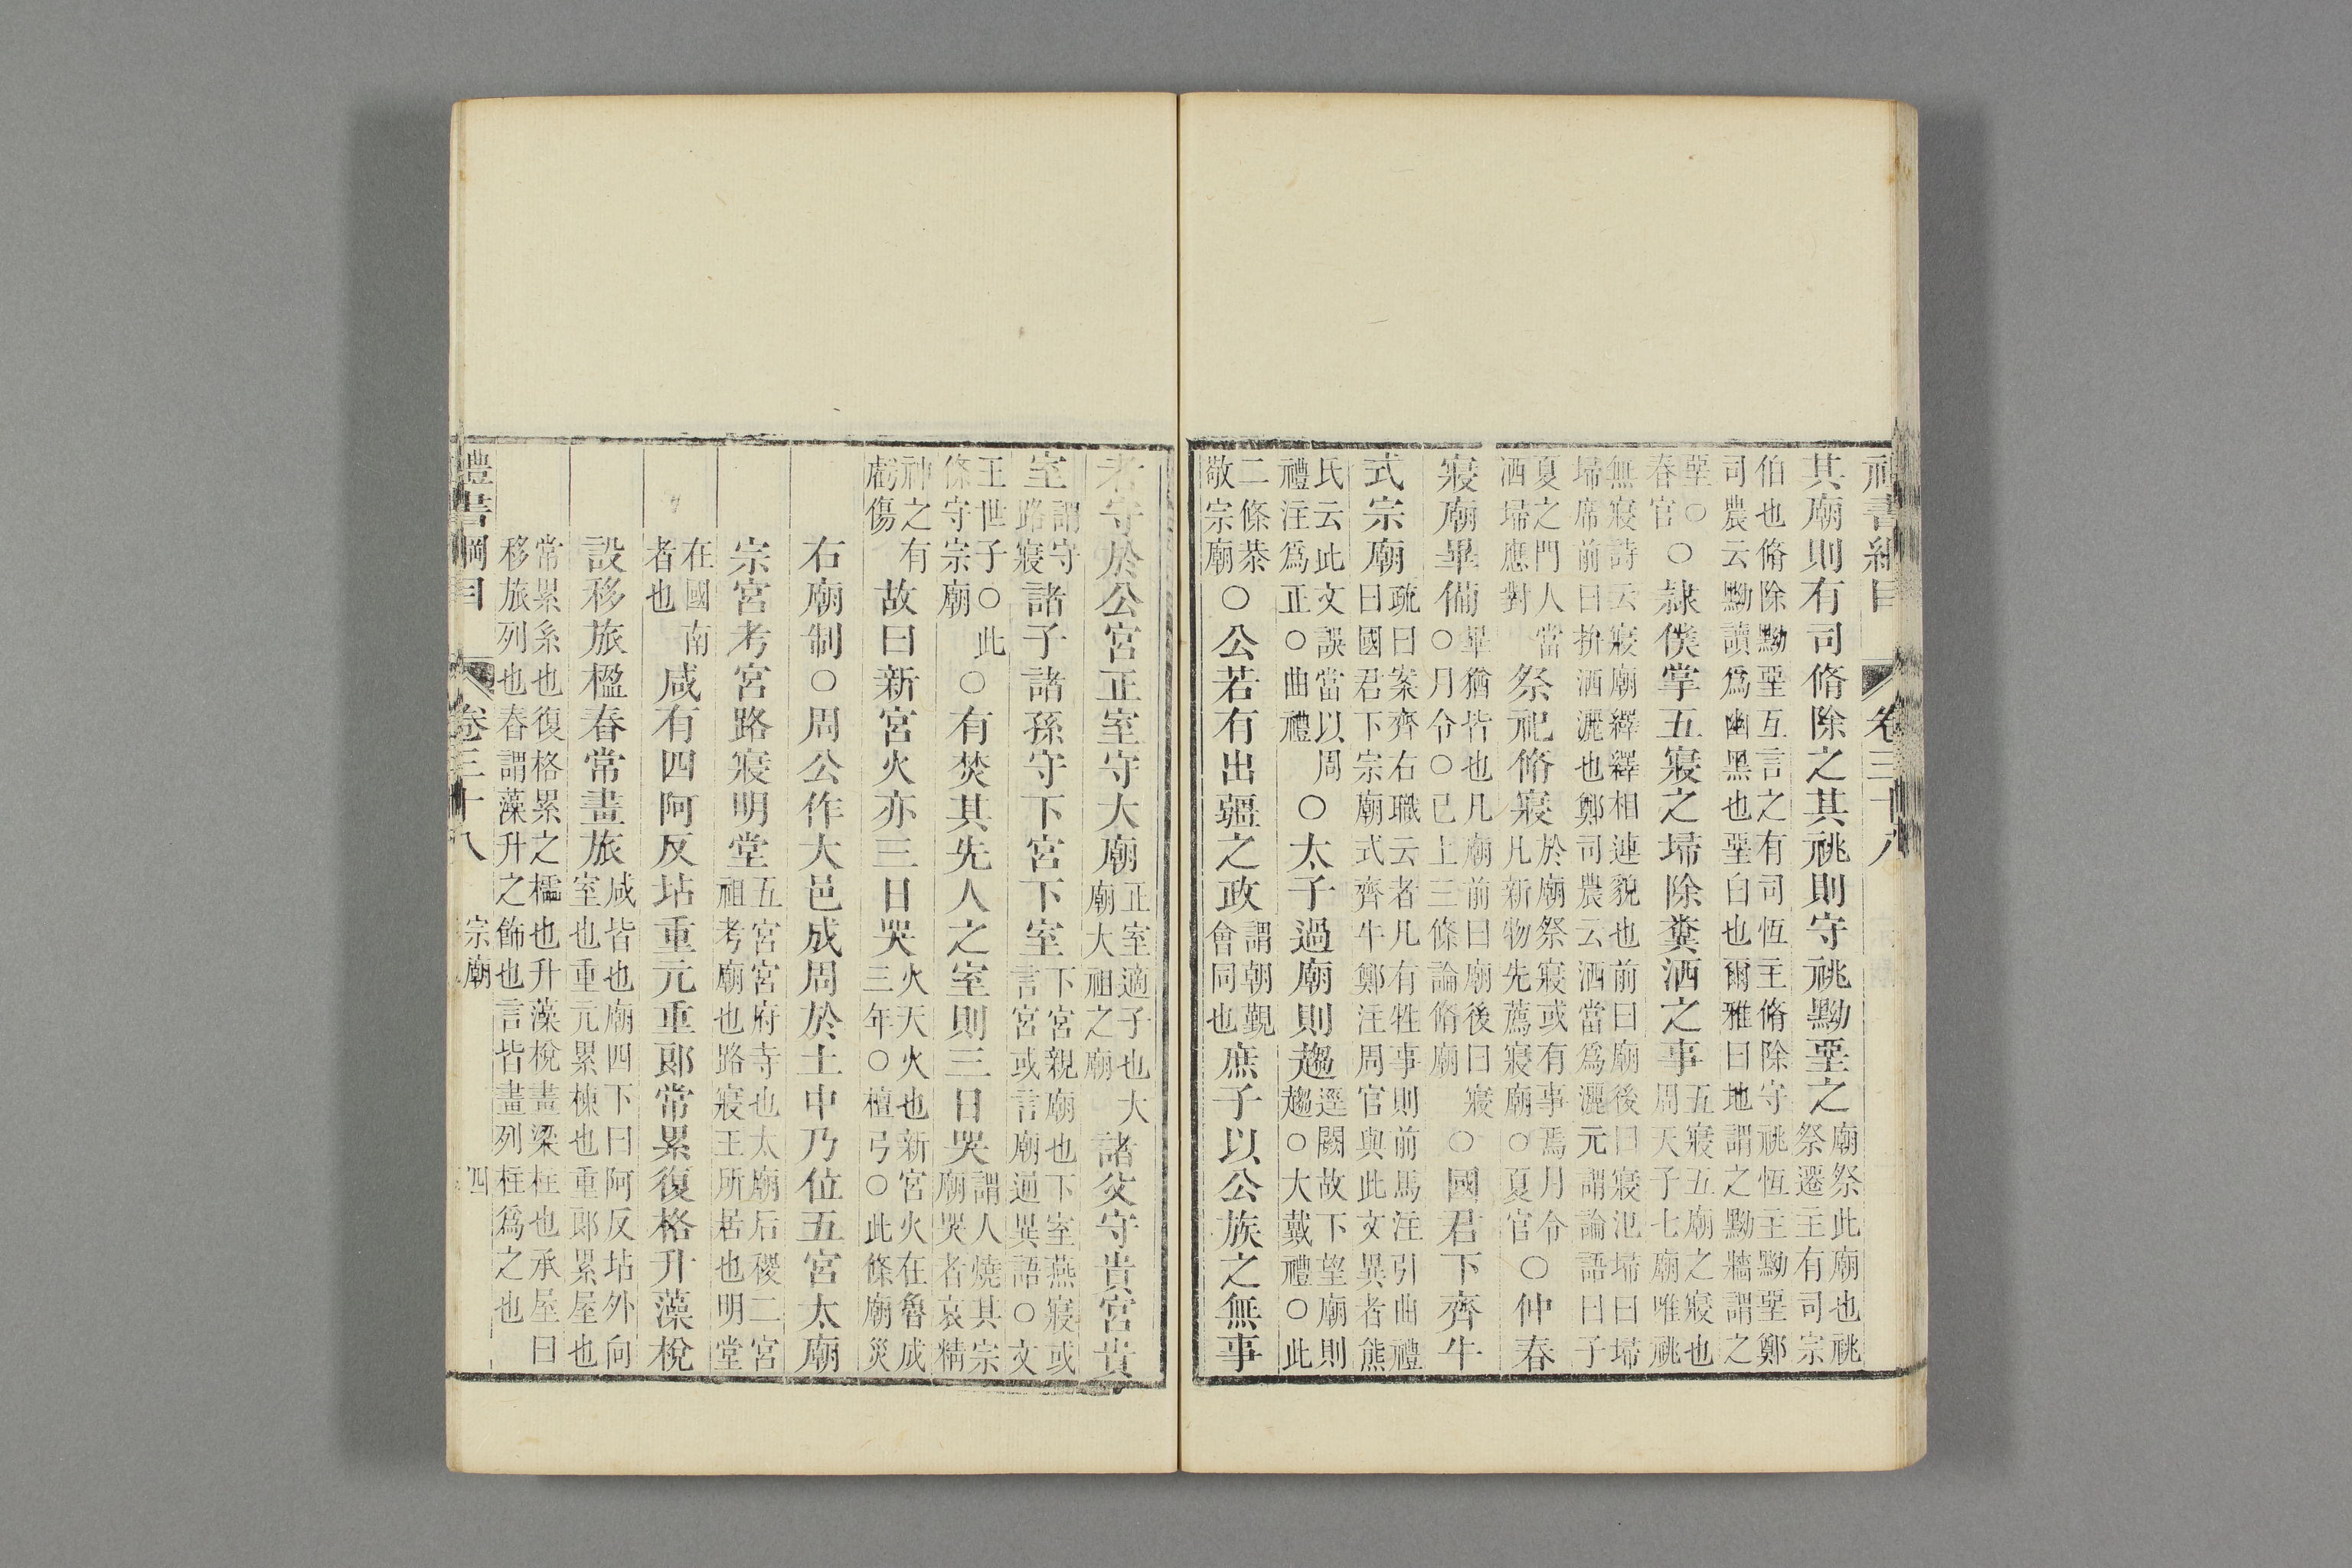 禮書綱目 卷三十八
其廟則有司脩除之其祧則守祧黝堊之廟祭此廟也祧祭遷主有司宗
伯也脩除黝堊互言之有司恆主脩除守祧恆主黝堊鄭司農云黝讀爲幽黑也堊白也爾雅曰地謂之黝牆謂之
堊○春官○隷僕掌五寢之埽除糞洒之事五寢五廟之寢也周天子七廟唯祧
無寢詩云寢廟繹繹相連貌也前曰廟後曰寢氾埽曰埽埽席前曰拚洒灑也鄭司農云洒當爲灑元謂論語曰子
夏之門人當洒埽應對祭祀脩寢於廟祭寢或有事焉月令凡新物先薦寢廟○夏官○仲春
寢廟畢備畢猶皆也凡廟前曰廟後曰寢○月令○已上三條論脩廟○國君下齊牛
式宗廟疏曰案齊右職云者凡有牲事則前馬注引曲禮曰國君下宗廟式齊牛鄭注周官與此文異者熊
氏云此文誤當以周禮注爲正○曲禮○太子過廟則趨逕闕故下望廟則趨○大戴禮○此
二條恭敬宗廟○公若有出疆之政謂朝覲會同也庶子以公族之無事
者守於公宮正室守大廟正室適子也大廟大祖之廟諸父守貴宮貴
室謂守路寢諸子諸孫守下宮下室下宮親廟也下室燕寢或言宮或言廟通異語○文
王世子○此條守宗廟○有焚其先人之室則三日哭謂人燒其宗廟哭者哀精
神之有虧傷故曰新宮火亦三日哭火天火也新宮火在魯成三年○檀弓○此條廟災
右廟制○周公作大邑成周於土中乃位五宮太廟
宗宮考宮路寢明堂五宮宮府寺也太廟后稷二宮祖考廟也路寢王所居也明堂
在國南者也咸有四阿反坫重元重郎常累復格升藻梲
設移旅楹舂常畫旅咸皆也廟四下曰阿反坫外向室也重元累棟也重郎累屋也
常累系也復格累之櫺也升藻梲畫梁柱也承屋曰移旅列也舂謂藻升之飾也言皆畫列柱爲之也
禮書綱目 卷三十八 宗廟 四